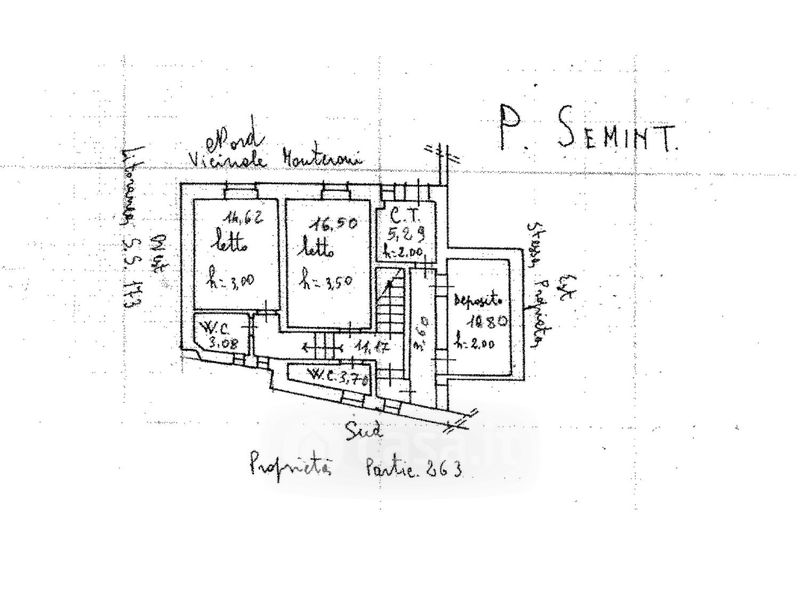 P. SEMINT.
Nord
Vicinale Monteroni
Litoranea S.S. 173
West
14,62
letto
h=3,00
16,50
letto
h=3,50
C.T.
5,29
h=2,00
Stessa Proprietà
Est
Deposito
10.80
h=2,00
W.C.
3,08
11,17
3,60
W.C. 3,70
Sud
Proprietà Partic. 263
casa.it